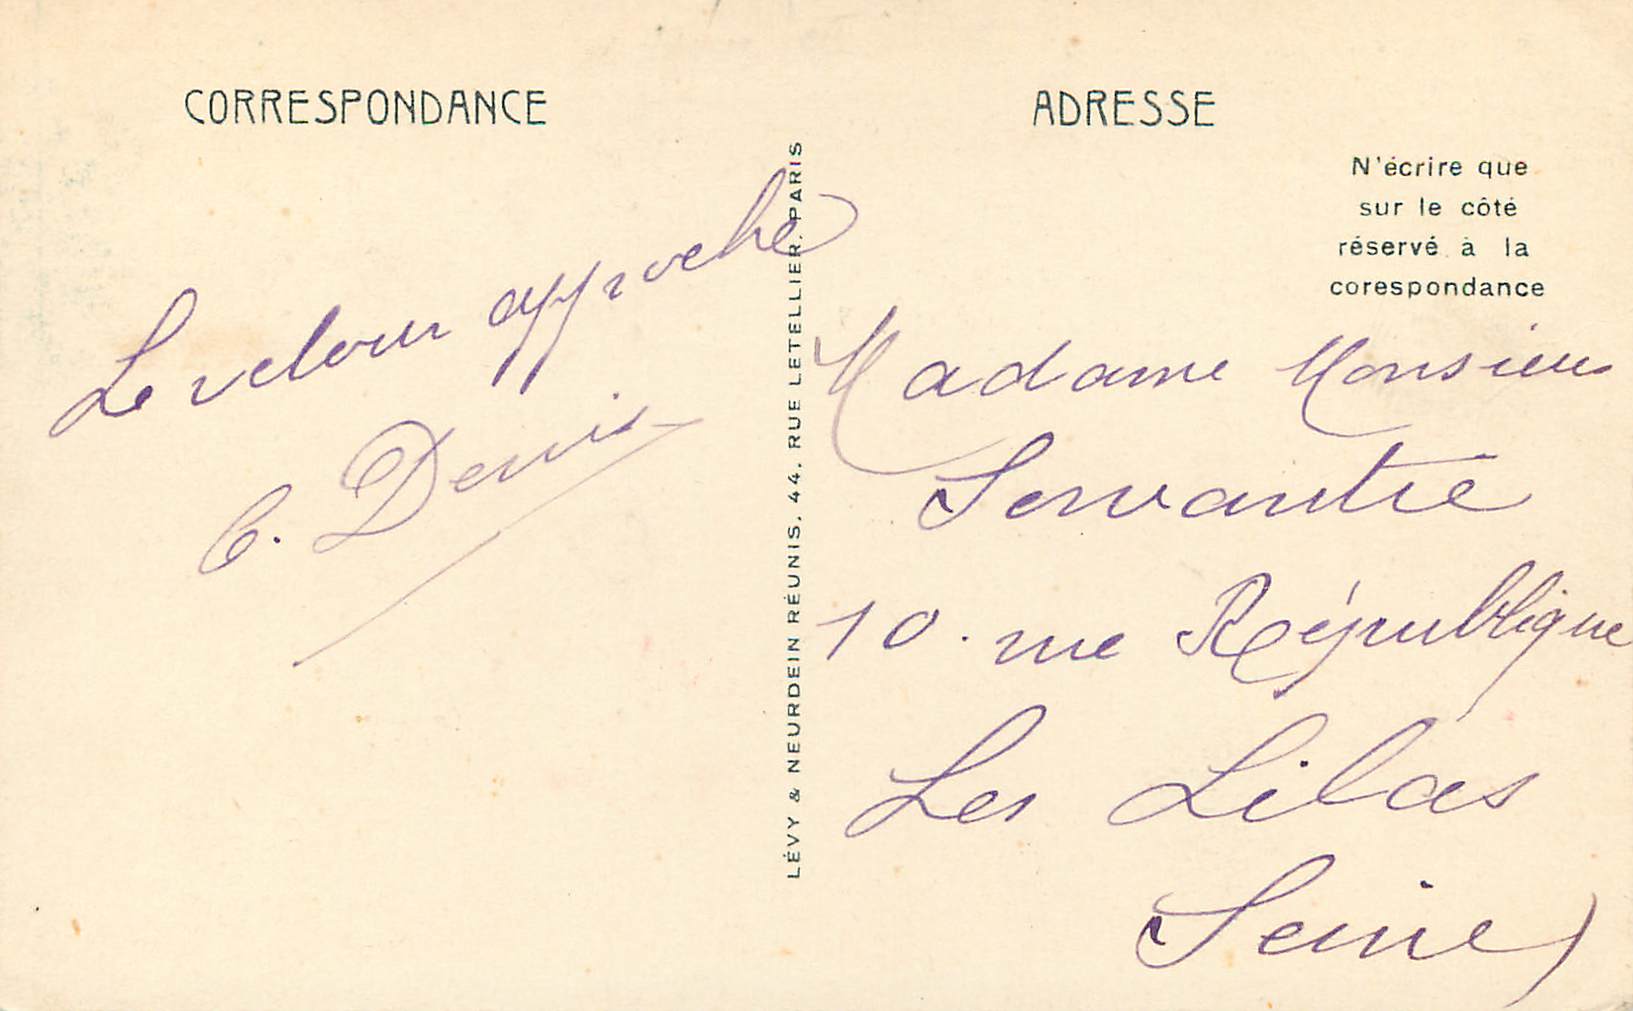 CORRESPONDANCE
Le retour approche
C. Denis
LÉVY & NEURDEIN RÉUNIS, 44, RUE LETELLIER. PARIS
ADRESSE
N'écrire que
sur le côté
réservé à la
corespondance
Madame Monsieur
Servantie
10. rue République
Les Lilas
Seine)